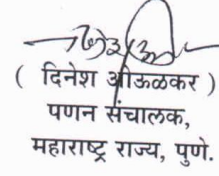 ( दिनेश ओऊळकर )
पणन संचालक,
महाराष्ट्र राज्य, पुणे.